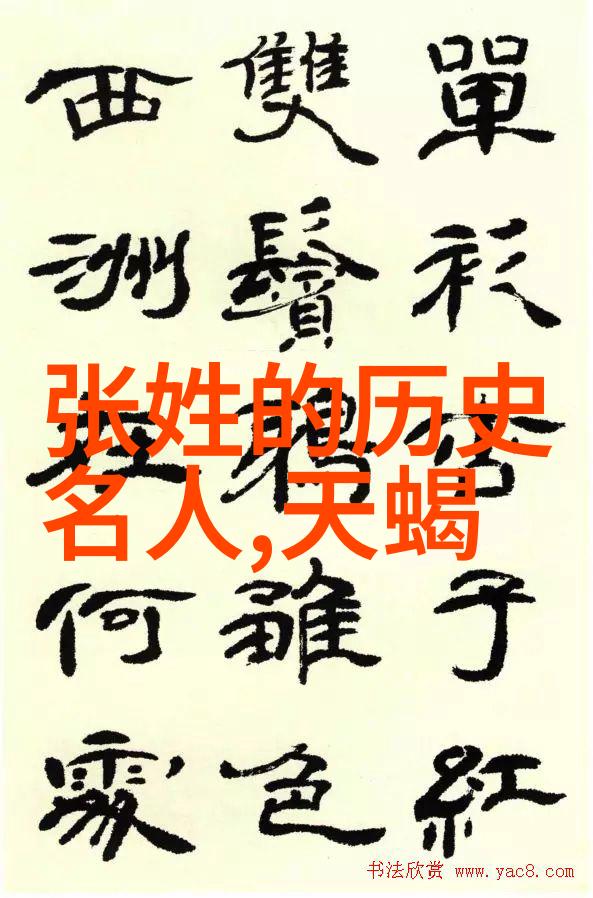 單衫杏子紅
雙鬢鴉雛色
西洲在何處
张姓的历史
名人,天蝎
书法欣赏 www.yac8.com